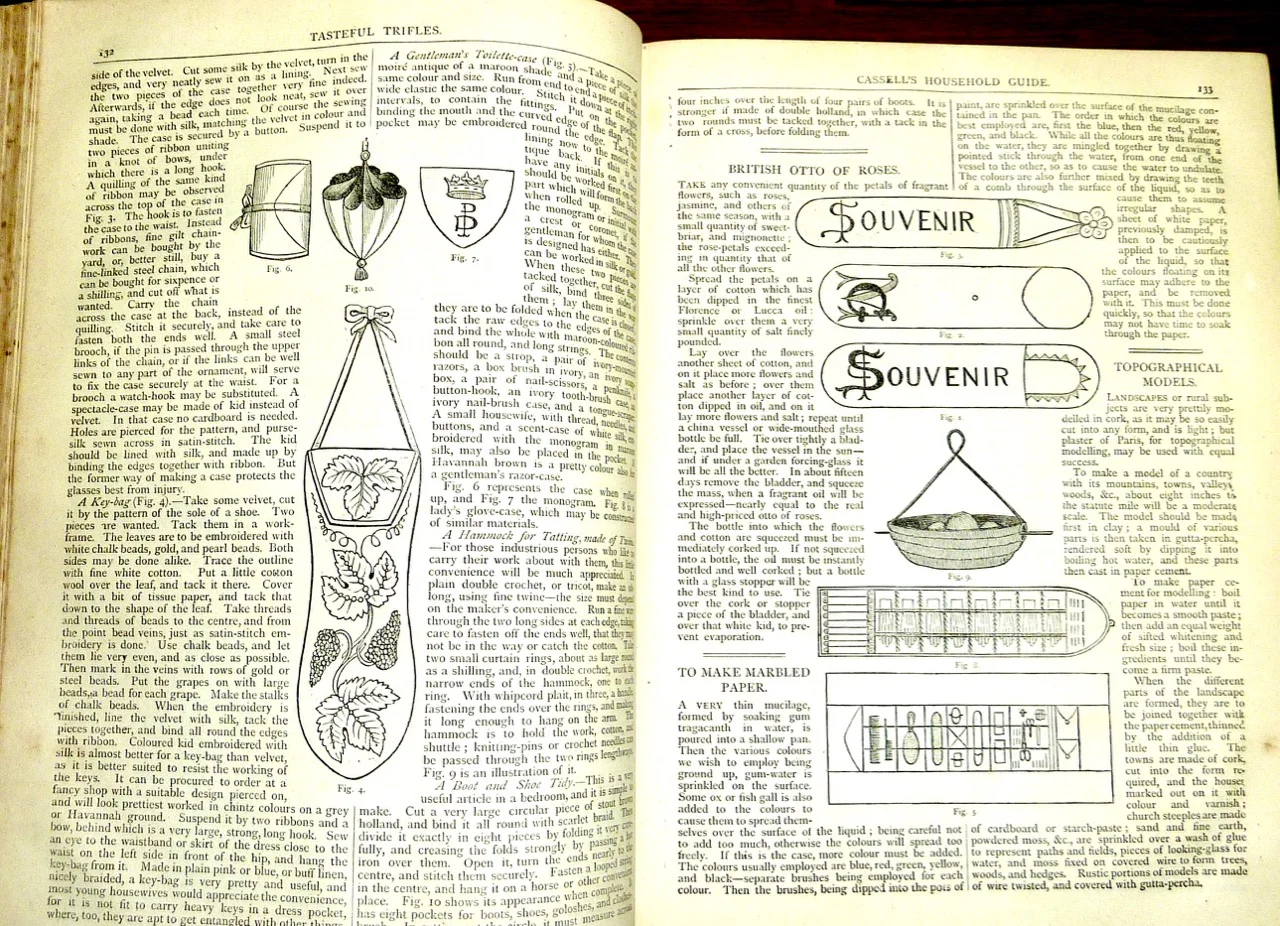 132
TASTEFUL TRIFLES.
side of the velvet. Cut some silk by the velvet, turn in the
edges, and very neatly sew it on as a lining. Next sew
the two pieces of the case together very fine indeed.
Afterwards, if the edge does not look neat, sew it over
again, taking a bead each time. Of course the sewing
must be done with silk, matching the velvet in colour and
shade. The case is secured by a button. Suspend it to
two pieces of ribbon uniting
in a knot of bows, under
which there is a long hook.
A quilling of the same kind
of ribbon may be observed
across the top of the case in
Fig. 3. The hook is to fasten
the case to the waist. Instead
of ribbons, fine gilt chain-
work can be bought by the
yard, or, better still, buy a
fine-linked steel chain, which
can be bought for sixpence or
a shilling, and cut off what is
wanted. Carry the chain
across the case at the back, instead of the
quilling. Stitch it securely, and take care to
fasten both the ends well. A small steel
brooch, if the pin is passed through the upper
links of the chain, or if the links can be well
sewn to any part of the ornament, will serve
to fix the case securely at the waist. For a
brooch a watch-hook may be substituted. A
spectacle-case may be made of kid instead of
velvet. In that case no cardboard is needed.
Holes are pierced for the pattern, and purse-
silk sewn across in satin-stitch. The kid
should be lined with silk, and made up by
binding the edges together with ribbon. But
the former way of making a case protects the
glasses best from injury.
A Key-bag (Fig. 4).—Take some velvet, cut
it by the pattern of the sole of a shoe. Two
pieces are wanted. Tack them in a work-
frame. The leaves are to be embroidered with
white chalk beads, gold, and pearl beads. Both
sides may be done alike. Trace the outline
with fine white cotton. Put a little cotton
wool over the leaf, and tack it there. Cover
it with a bit of tissue paper, and tack that
down to the shape of the leaf. Take threads
and threads of beads to the centre, and from
the point bead veins, just as satin-stitch em-
broidery is done. Use chalk beads, and let
them lie very even, and as close as possible.
Then mark in the veins with rows of gold or
steel beads. Put the grapes on with large
beads, a bead for each grape. Make the stalks
of chalk beads. When the embroidery is
finished, line the velvet with silk, tack the
pieces together, and bind all round the edges
with ribbon. Coloured kid embroidered with
silk is almost better for a key-bag than velvet,
as it is better suited to resist the working of
the keys. It can be procured to order at a
fancy shop with a suitable design pierced on,
and will look prettiest worked in chintz colours on a grey
or Havannah ground. Suspend it by two ribbons and a
bow, behind which is a very large, strong, long hook. Sew
an eye to the waistband or skirt of the dress close to the
waist on the left side in front of the hip, and hang the
key-bag from it. Made in plain pink or blue, or buff linen,
nicely braided, a key-bag is very pretty and useful, and
most young housewives would appreciate the convenience,
for it is not fit to carry heavy keys in a dress pocket,
where, too, they are apt to get entangled with other things
Fig. 6.
Fig. 10.
Fig. 7.
Fig. 4.
A Gentleman's Toilette-case (Fig. 5).—Take a piece of
moiré antique of a maroon shade and a piece of silk the
same colour and size. Run from end to end a piece of
wide elastic the same colour. Stitch it down at
intervals, to contain the fittings. Put on the pocket,
binding the mouth and the curved edge of the flap. The
pocket may be embroidered round the edge. Tack the
lining now to the moiré
tique back. If
have any initials on it,
should be worked
part which will form the
when rolled up.
the monogram or initial with
a crest or coronet, if the
gentleman for whom the
is designed has either.
can be worked in silk or gold.
When these two pieces
tacked together, cut the
of silk, bind three sides
them; lay them in the
they are to be folded when the case is closed,
tack the raw edges to the edges of the case,
and bind the whole with maroon-coloured rib-
bon all round, and long strings. The contents
should be a strop, a pair of ivory-mounted
razors, a box brush in ivory, an ivory soap
box, a pair of nail-scissors, a penknife, a
button-hook, an ivory tooth-brush case, an
ivory nail-brush case, and a tongue-scraper.
A small housewife, with thread, needles,
buttons, and a scent-case of white silk, em-
broidered with the monogram in maroon
silk, may also be placed in the pocket.
Havannah brown is a pretty colour also for
a gentleman's razor-case.
Fig. 6 represents the case when rolled
up, and Fig. 7 the monogram. Fig. 8 is a
lady's glove-case, which may be constructed
of similar materials.
A Hammock for Tatting, made of Twine.
—For those industrious persons who like to
carry their work about with them, this little
convenience will be much appreciated. In
plain double crochet, or tricot, make an
long, using fine twine—the size must depend
on the maker's convenience. Run a fine wire
through the two long sides at each edge, taking
care to fasten off the ends well, that they may
not be in the way or catch the cotton. Take
two small curtain rings, about as large round
as a shilling, and, in double crochet, work the
narrow ends of the hammock, one to each
ring. With whipcord plait, in three, a handle,
fastening the ends over the rings, and making
it long enough to hang on the arm. The
hammock is to hold the work, cotton, and
shuttle; knitting-pins or crochet needles can
be passed through the two rings lengthways.
Fig. 9 is an illustration of it.
A Boot and Shoe Tidy.—This is a very
useful article in a bedroom, and it is simple to
make. Cut a very large circular piece of stout brown
holland, and bind it all round with scarlet braid. Then
divide it exactly in eight pieces by folding it very care-
fully, and creasing the folds strongly by passing a
iron over them. Open it, turn the ends nearly to the
centre, and stitch them securely. Fasten a loop
in the centre, and hang it on a horse or other convenient
place. Fig. 10 shows its appearance when complete. It
has eight pockets for boots, shoes, goloshes, and clothes
CASSELL'S HOUSEHOLD GUIDE.
133
four inches over the length of four pairs of boots. It is
stronger if made of double holland, in which case the
two rounds must be tacked together, with a tack in the
form of a cross, before folding them.
BRITISH OTTO OF ROSES.
TAKE any convenient quantity of the petals of fragrant
flowers, such as roses,
jasmine, and others of
the same season, with a
small quantity of sweet-
briar, and mignonette;
the rose-petals exceed-
ing in quantity that of
all the other flowers.
Spread the petals on a
layer of cotton which has
been dipped in the finest
Florence or Lucca oil:
sprinkle over them a very
small quantity of salt finely
pounded.
Lay over the flowers
another sheet of cotton, and
on it place more flowers and
salt as before; over them
place another layer of cot-
ton dipped in oil, and on it
lay more flowers and salt; repeat until
a china vessel or wide-mouthed glass
bottle be full. Tie over tightly a blad-
der, and place the vessel in the sun—
and if under a garden forcing-glass it
will be all the better. In about fifteen
days remove the bladder, and squeeze
the mass, when a fragrant oil will be
expressed—nearly equal to the real
and high-priced otto of roses.
The bottle into which the flowers
and cotton are squeezed must be im-
mediately corked up. If not squeezed
into a bottle, the oil must be instantly
bottled and well corked; but a bottle
with a glass stopper will be
the best kind to use. Tie
over the cork or stopper
a piece of the bladder, and
over that white kid, to pre-
vent evaporation.
TO MAKE MARBLED
PAPER.
A VERY thin mucilage,
formed by soaking gum
tragacanth in water, is
poured into a shallow pan.
Then the various colours
we wish to employ being
ground up, gum-water is
sprinkled on the surface.
Some ox or fish gall is also
added to the colours to
cause them to spread them-
selves over the surface of the liquid; being careful not
to add too much, otherwise the colours will spread too
freely. If this is the case, more colour must be added.
The colours usually employed are blue, red, green, yellow,
and black—separate brushes being employed for each
colour. Then the brushes, being dipped into the pots of
SOUVENIR
Fig. 3.
Fig. 2.
SOUVENIR
Fig. 1.
Fig. 9.
Fig. 8.
Fig. 5.
paint, are sprinkled over the surface of the mucilage con-
tained in the pan. The order in which the colours are
best employed are, first the blue, then the red, yellow,
green, and black. While all the colours are thus floating
on the water, they are mingled together by drawing a
pointed stick through the water, from one end of the
vessel to the other, so as to cause the water to undulate.
The colours are also further mixed by drawing the teeth
of a comb through the surface of the liquid, so as to
cause them to assume
irregular shapes. A
sheet of white paper,
previously damped, is
then to be cautiously
applied to the surface
of the liquid, so that
the colours floating on its
surface may adhere to the
paper, and be removed
with it. This must be done
quickly, so that the colours
may not have time to soak
through the paper.
TOPOGRAPHICAL
MODELS.
LANDSCAPES or rural sub-
jects are very prettily mo-
delled in cork, as it may be so easily
cut into any form, and is light; but
plaster of Paris, for topographical
modelling, may be used with equal
success.
To make a model of a country
with its mountains, towns, valleys,
woods, &c., about eight inches to
the statute mile will be a moderate
scale. The model should be made
first in clay; a mould of various
parts is then taken in gutta-percha,
rendered soft by dipping it into
boiling hot water, and these parts
then cast in paper cement.
To make paper ce-
ment for modelling: boil
paper in water until it
becomes a smooth paste;
then add an equal weight
of sifted whitening and
fresh size; boil these in-
gredients until they be-
come a firm paste.
When the different
parts of the landscape
are formed, they are to
be joined together with
the paper cement, thinned
by the addition of a
little thin glue. The
towns are made of cork,
cut into the form re-
quired, and the houses
marked out on it with
colour and varnish;
church steeples are made
of cardboard or starch-paste; sand and fine earth,
powdered moss, &c., are sprinkled over a wash of glue
to represent paths and fields, pieces of looking-glass for
water, and moss fixed on covered wire to form trees,
woods, and hedges. Rustic portions of models are made
of wire twisted, and covered with gutta-percha.